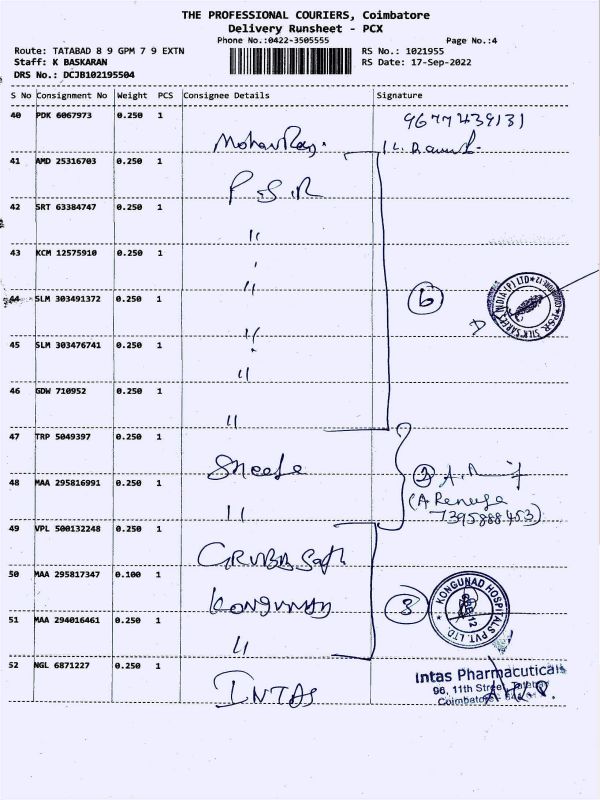 THE PROFESSIONAL COURIERS, Coimbatore
Delivery Runsheet - PCX
Phone No.:0422-3505555 Page No.:4
Route: TATABAD 8 9 GPM 7 9 EXTN RS No.: 1021955
Staff: K BASKARAN RS Date: 17-Sep-2022
DRS No.: DCJB102195504
S No Consignment No Weight PCS Consignee Details Signature
40 PDK 6067973 0.250 1 9677439131
MohanRaj.
41 AMD 25316703 0.250 1
P S R
42 SRT 63384747 0.250 1
"
43 KCM 12575910 0.250 1
"
44 SLM 303491372 0.250 1 6
"
45 SLM 303476741 0.250 1
"
46 GDW 710952 0.250 1
"
47 TRP 5049397 0.250 1
48 MAA 295816991 0.250 1 2
" (A Renuga
7395888453)
49 VPL 500132248 0.250 1
50 MAA 295817347 0.100 1 3
51 MAA 294016461 0.250 1
"
KONGUNAD HOSPITALS PVT. LTD.
52 NGL 6871227 0.250 1
INTAS
Intas Pharmaceuticals
96, 11th Street, Tatabad
Coimbatore